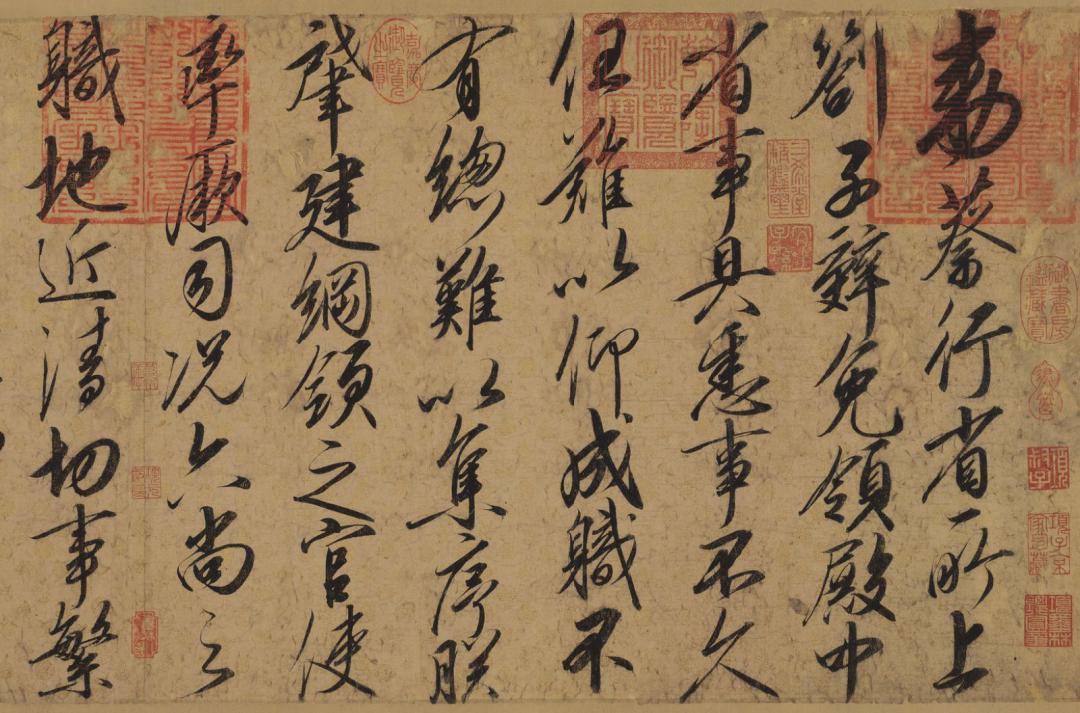 勅蔡行省所上
劄子辭免領殿中
省事具悉事不久
任難以仰成職不
有總難以集序朕
肇建綱領之官使
率厥司況六尚之
職地近清切事繁